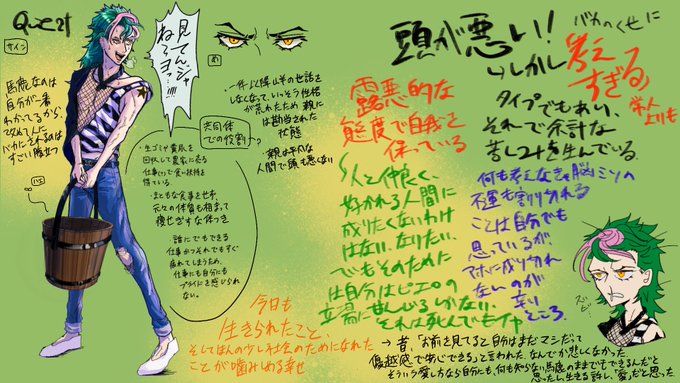 サイン
見てんジャ
ねーヨ!!!!
め
馬鹿なのは
自分が一番
わかっているから
バカにされるのは
すごい腹立つ
ハエ
性格
が荒れたため 親に
は勘当された
状態
親は平凡な
人間で頭も悪くない
共同体
での役割
生ゴミや糞尿を
回収して農家に売る
仕事
得ている
まともな食事をせず
元々の体質も相まって
痩せぎすな体つき
誰にでもできる
仕事かつそれでもすぐ
疲れてしまうため
仕事にも自分にも
プライドを感じられ
ない。
今日も
生きられたこと、
そしてほんの少し社会のためになれた
ことが噛みしめる幸せ
頭が悪い!
バカのくせに
しかし
考え
すぎる
常人
よりも
タイプでもあい、
それで余計な
苦しみを生んでいる.
露悪的な
態度で自我を
保っている
人と仲良く、
好かれる人間に
成りたくないわけ
はない、なりたい、
でもそのために
は自分はピエロの
立場に甘んじるしかない、
それは死んでもイヤ
何も考えなきゃ脳ミソの
不運も割り切れる
ことは自分でも
思っているが、
アホに成り切れ
ないのが
辛い
ところ.
→昔、「お前を見てると自分はまだマシだって
優越感で安心できる」って言われた. なんでか悲しくなかった.
そういう愛し方なら自分にも、何も知らない馬鹿のままでもできるんだと
思ったし生きる許し、「愛」だと思った.